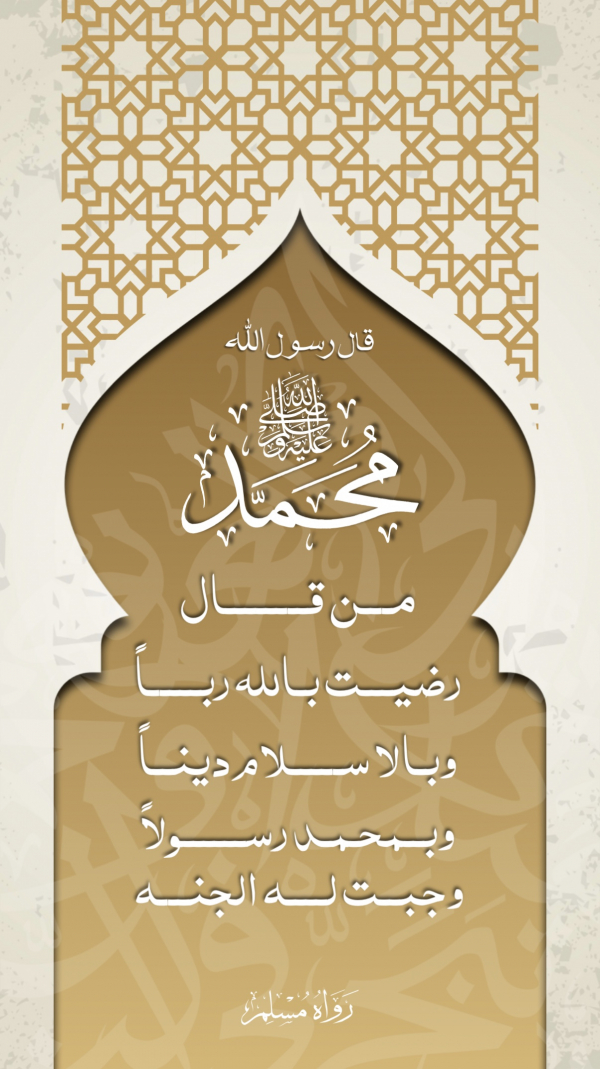 قال رسول الله
محمد
صلى الله عليه وسلم
من قال
رضيت بالله رباً
وبالا سلام ديناً
وبمحمد رسولاً
وجبت له الجنه
رَوَاهُ مُسْلِم